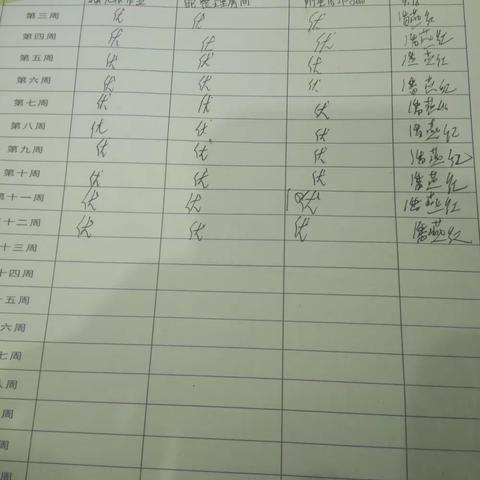 能整理房间
第三周 优 优 优 潘燕红
第四周 优 优 优 潘燕红
第五周 优 优 优 潘燕红
第六周 优 优 优 潘燕红
第七周 优 优 优 潘燕红
第八周 优 优 优 潘燕红
第九周 优 优 优 潘燕红
第十周 优 优 优 潘燕红
第十一周 优 优 优 潘燕红
十二周 优 优 优 潘燕红
十三周
十四周
十五周
六周
七周
八周
周
周
周